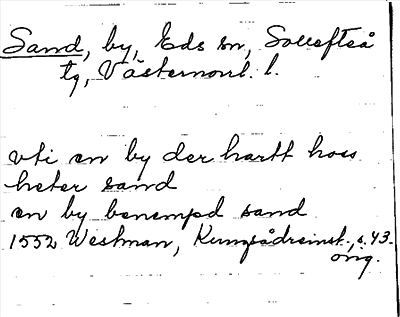 Sand, by, Eds sn, Sollefteå
tg, Västernorrl. l.
vti en by der hartt hoss
heter sand
en by benempd sand
1552 Westman, s. 43.
orig.